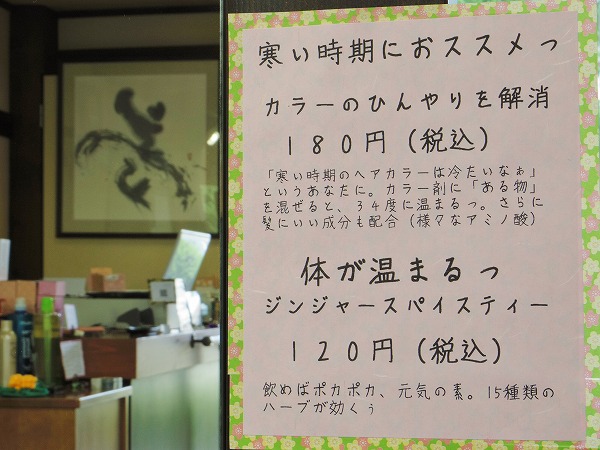 寒い時期におススメっ
カラーのひんやりを解消
１８０円（税込）
「寒い時期のヘアカラーは冷たいなぁ」
というあなたに。カラー剤に「ある物」
を混ぜると、３４度に温まるっ。さらに
髪にいい成分も配合（様々なアミノ酸）
体が温まるっ
ジンジャースパイスティー
１２０円（税込）
飲めばポカポカ、元気の素。15種類の
ハーブが効くぅ